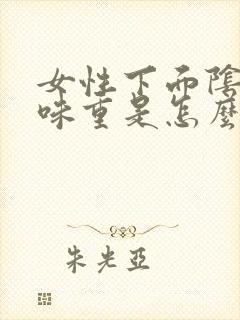 女性下面陰
味重是怎麼
朱光亞